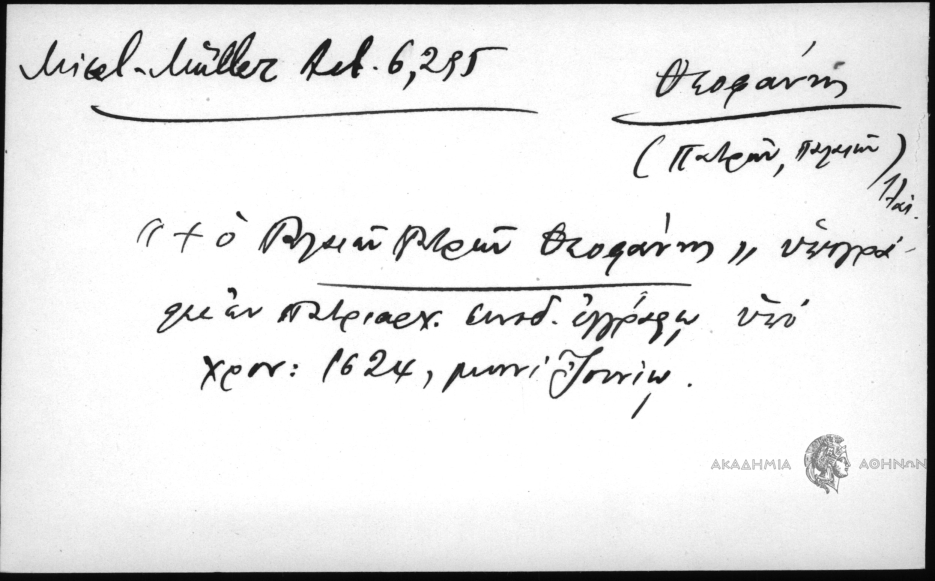 Micel-Müller Act. 6,295
Θεοφάνης
(Πατρῶν, Παλαιῶν)
«+ ὁ Παλαιῶν Πατρῶν Θεοφάνης» ὑπογρά-
φει ἐν πατριαρχ. συνοδ. ἐγγράφῳ ὑπό
χρον: 1624, μηνί Ἰουνίῳ.
ΑΚΑΔΗΜΙΑ ΑΘΗΝΩΝ